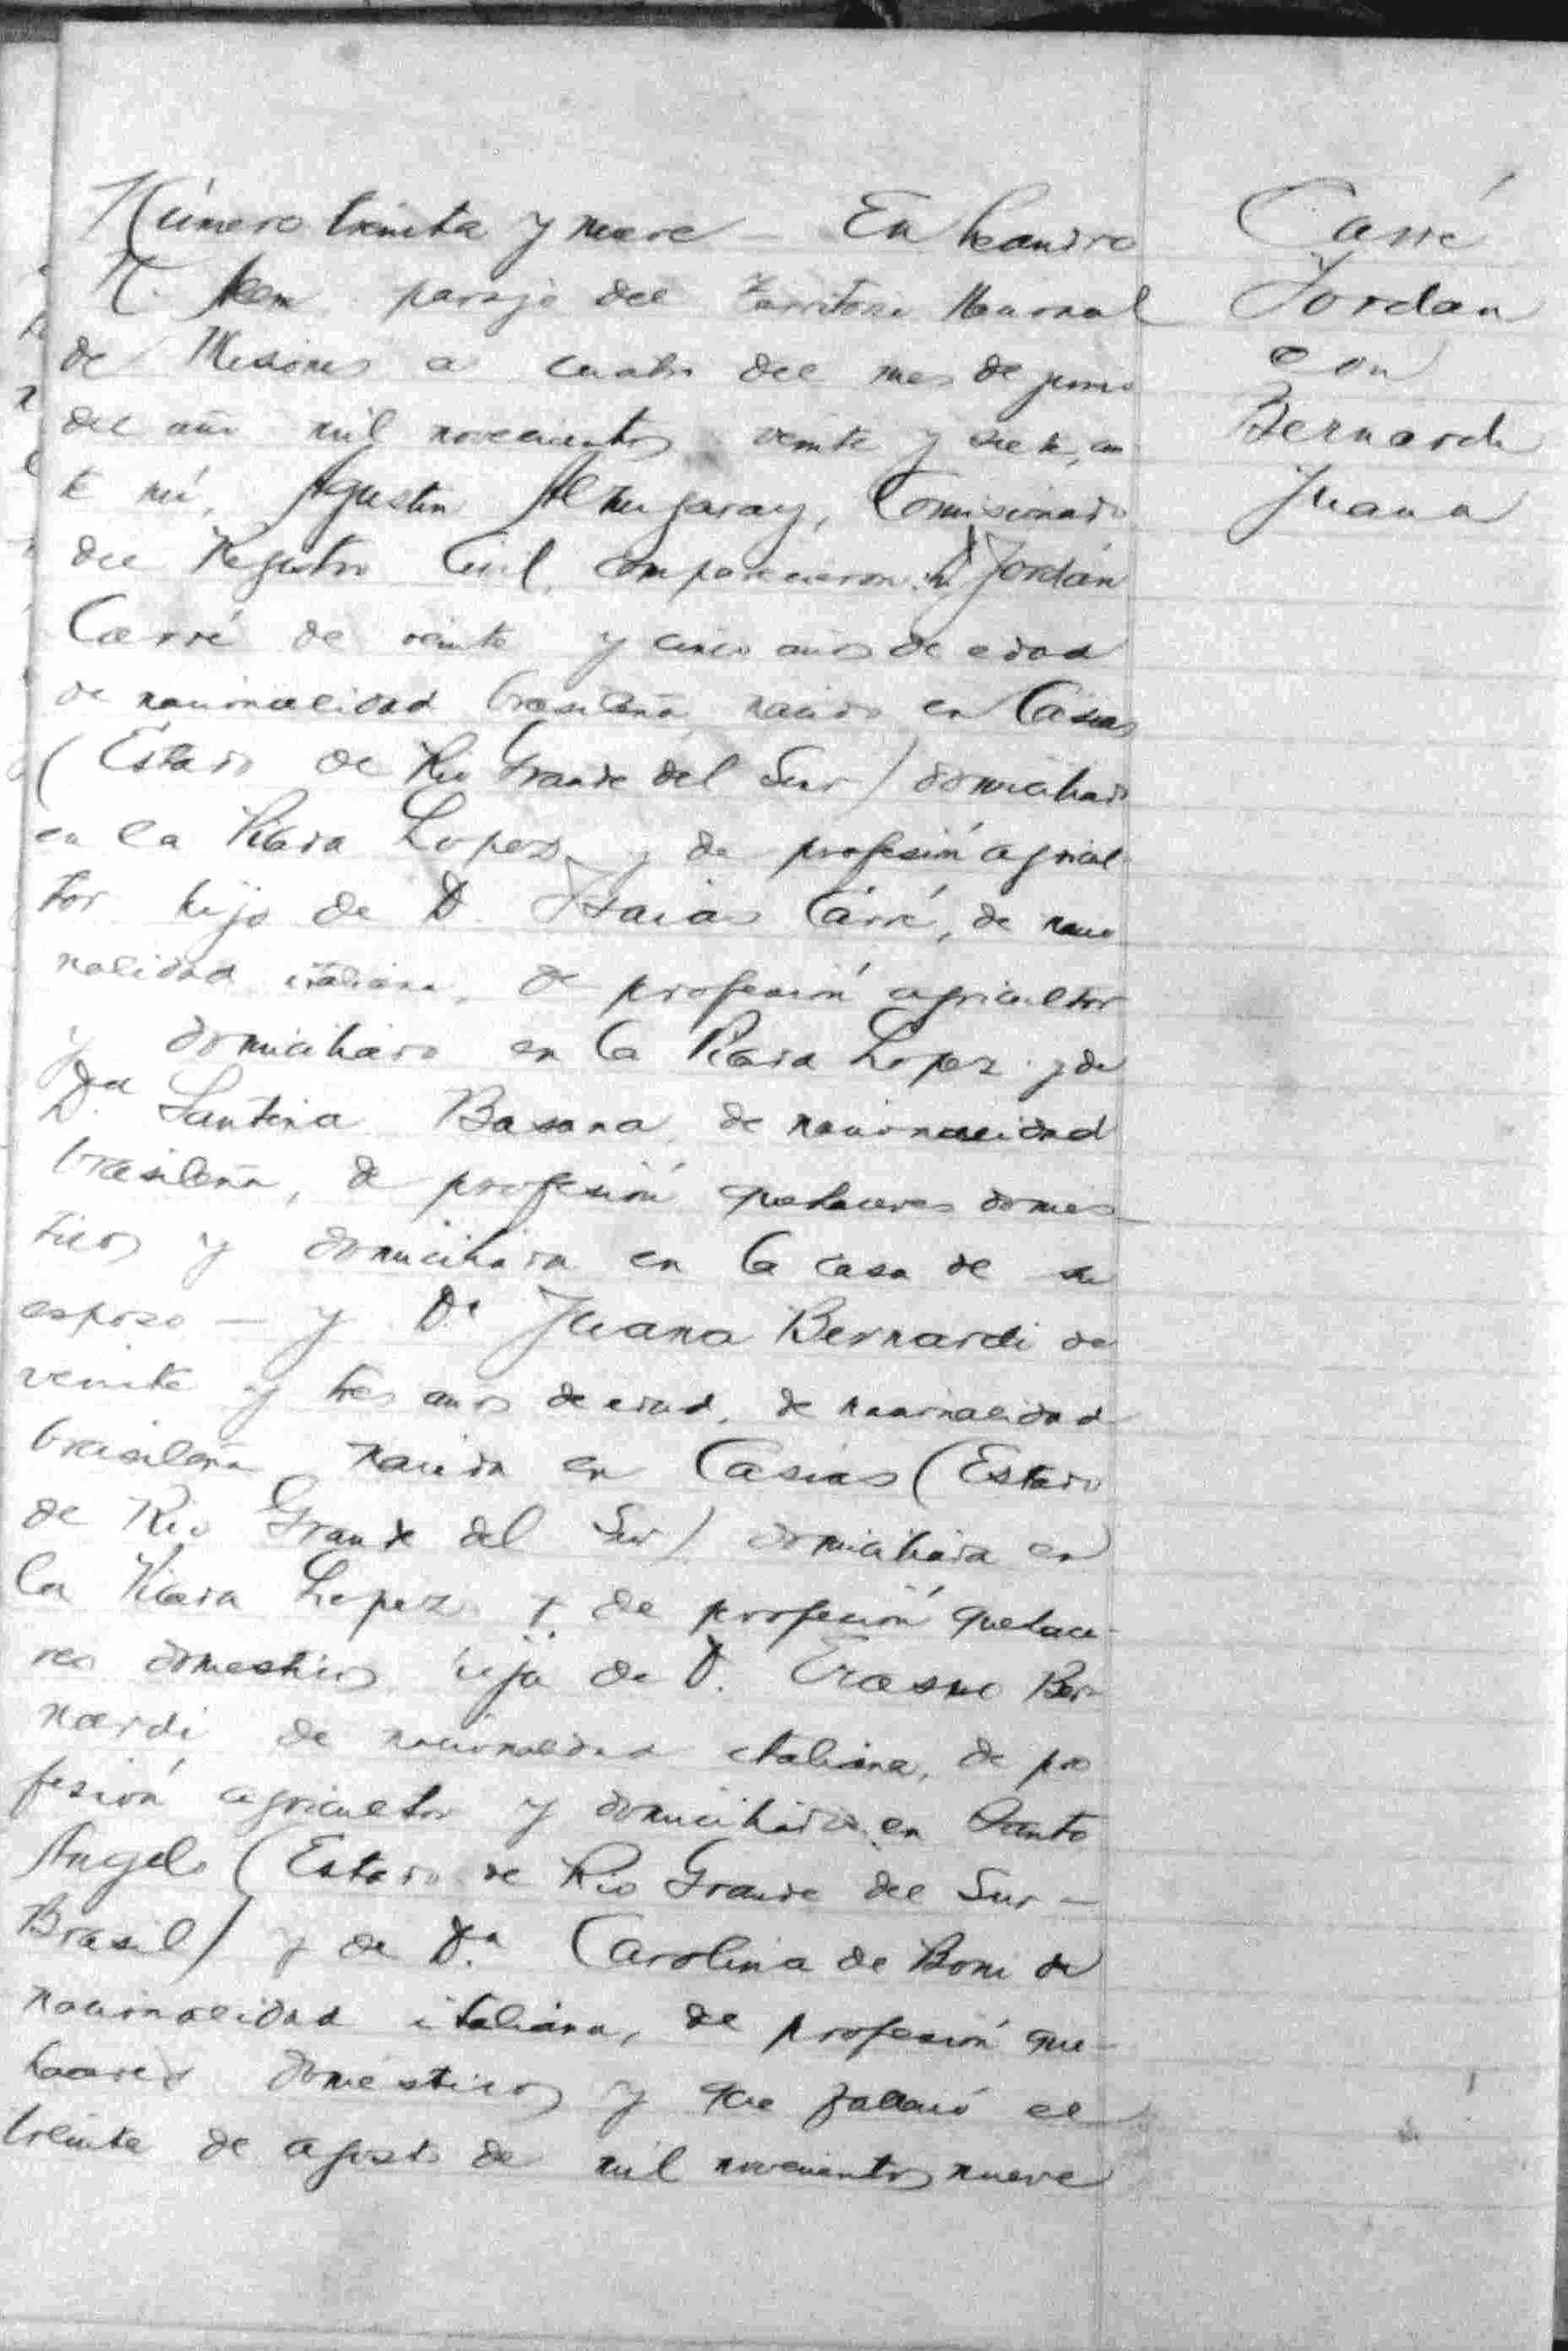 Número treinta y nueve — En Leandro
N. Alem paraje del Territorio Nacional
de Misiones a cuatro del mes de junio
del año mil novecientos veinte y siete, an-
te mí, Agustin Alzugaray, Comisionado
del Registro Civil, comparecieron D. Jordán
Carré de veinte y cinco años de edad
de nacionalidad brasileña nacido en Casias
(Estado de Rio Grande del Sur) domiciliado
en la Picada Lopez y de profesión agricul-
tor hijo de D. Isaias Carré, de nacio
nalidad italiana, de profesión agricultor
y domiciliado en la Picada Lopez y de
Da Santina Basana, de nacionalidad
brasileña, de profesión quehaceres domes-
ticos y domiciliada en la casa de su
esposo — y Da Juana Bernardi de
veinte y tres años de edad, de nacionalidad
brasileña nacida en Casias (Estado
de Rio Grande del Sur) domiciliada en
la Picada Lopez y de profesión quehace-
res domesticos hija de D. Erasmo Ber-
nardi de nacionalidad italiana, de pro
fesión agricultor y domiciliado en Santo
Angelo (Estado de Rio Grande del Sur —
Brasil) y de Da. Carolina de Boni de
nacionalidad italiana, de profesión que-
haceres domésticos y que falleció el
treinta de agosto de mil novecientos nueve
Carré
Jordan
con
Bernardi
Juana